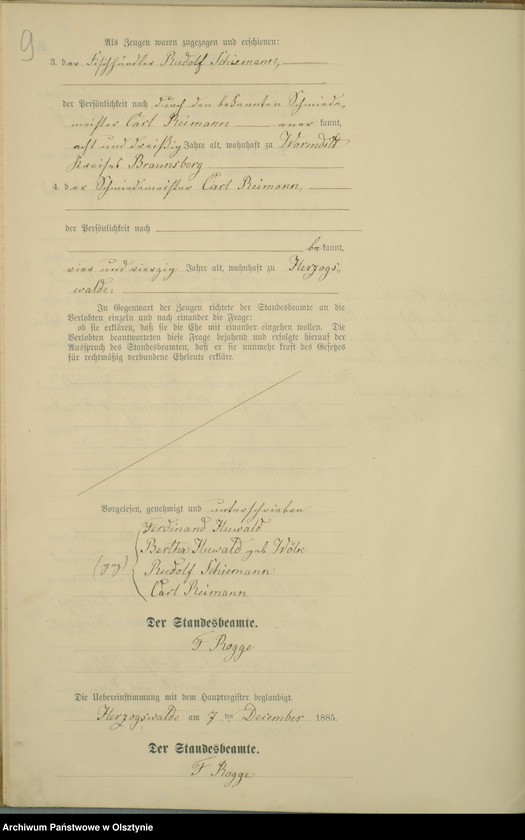 9
Als Zeugen waren zugezogen und erschienen:
3. der Fischhändler Rudolf Schiemann,
der Persönlichkeit nach durch den bekannten Schmiede-
meister Carl Reimann aner kannt,
acht und dreißig Jahre alt, wohnhaft zu Wormditt
Kreises Braunsberg
4. der Schmiedemeister Carl Reimann,
der Persönlichkeit nach
be kannt,
vier und vierzig Jahre alt, wohnhaft zu Herzogs-
walde.
In Gegenwart der Zeugen richtete der Standesbeamte an die
Verlobten einzeln und nach einander die Frage:
ob sie erklären, daß sie die Ehe mit einander eingehen wollen. Die
Verlobten beantworteten diese Frage bejahend und erfolgte hierauf der
Ausspruch des Standesbeamten, daß er sie nunmehr kraft des Gesetzes
für rechtmäßig verbundene Eheleute erkläre.
Vorgelesen, genehmigt und unterschrieben
Ferdinand Huwald
Bertha Huwald geb Wölk
(gez) Rudolf Schiemann
Carl Reimann
Der Standesbeamte.
F Rogge
Die Uebereinstimmung mit dem Hauptregister beglaubigt.
Herzogswalde am 7 ten December 1885.
Der Standesbeamte.
F Rogge
Archiwum Państwowe w Olsztynie